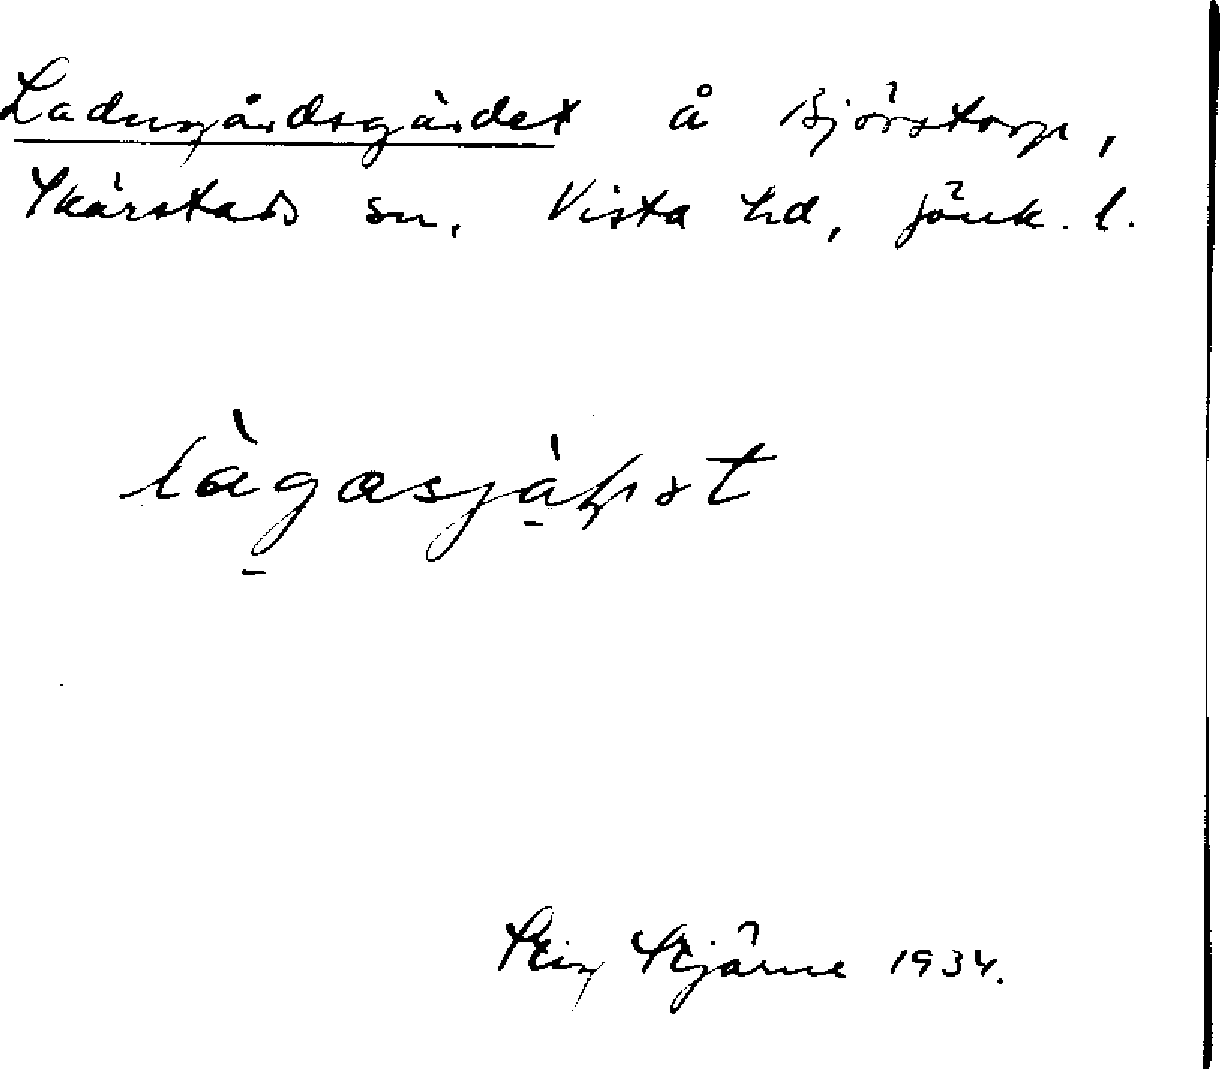 Ladugårdsgärdet å Björstorp,
Skärstads sn. Vista hd, Jönk. l.
Stig Stjärne 1934.